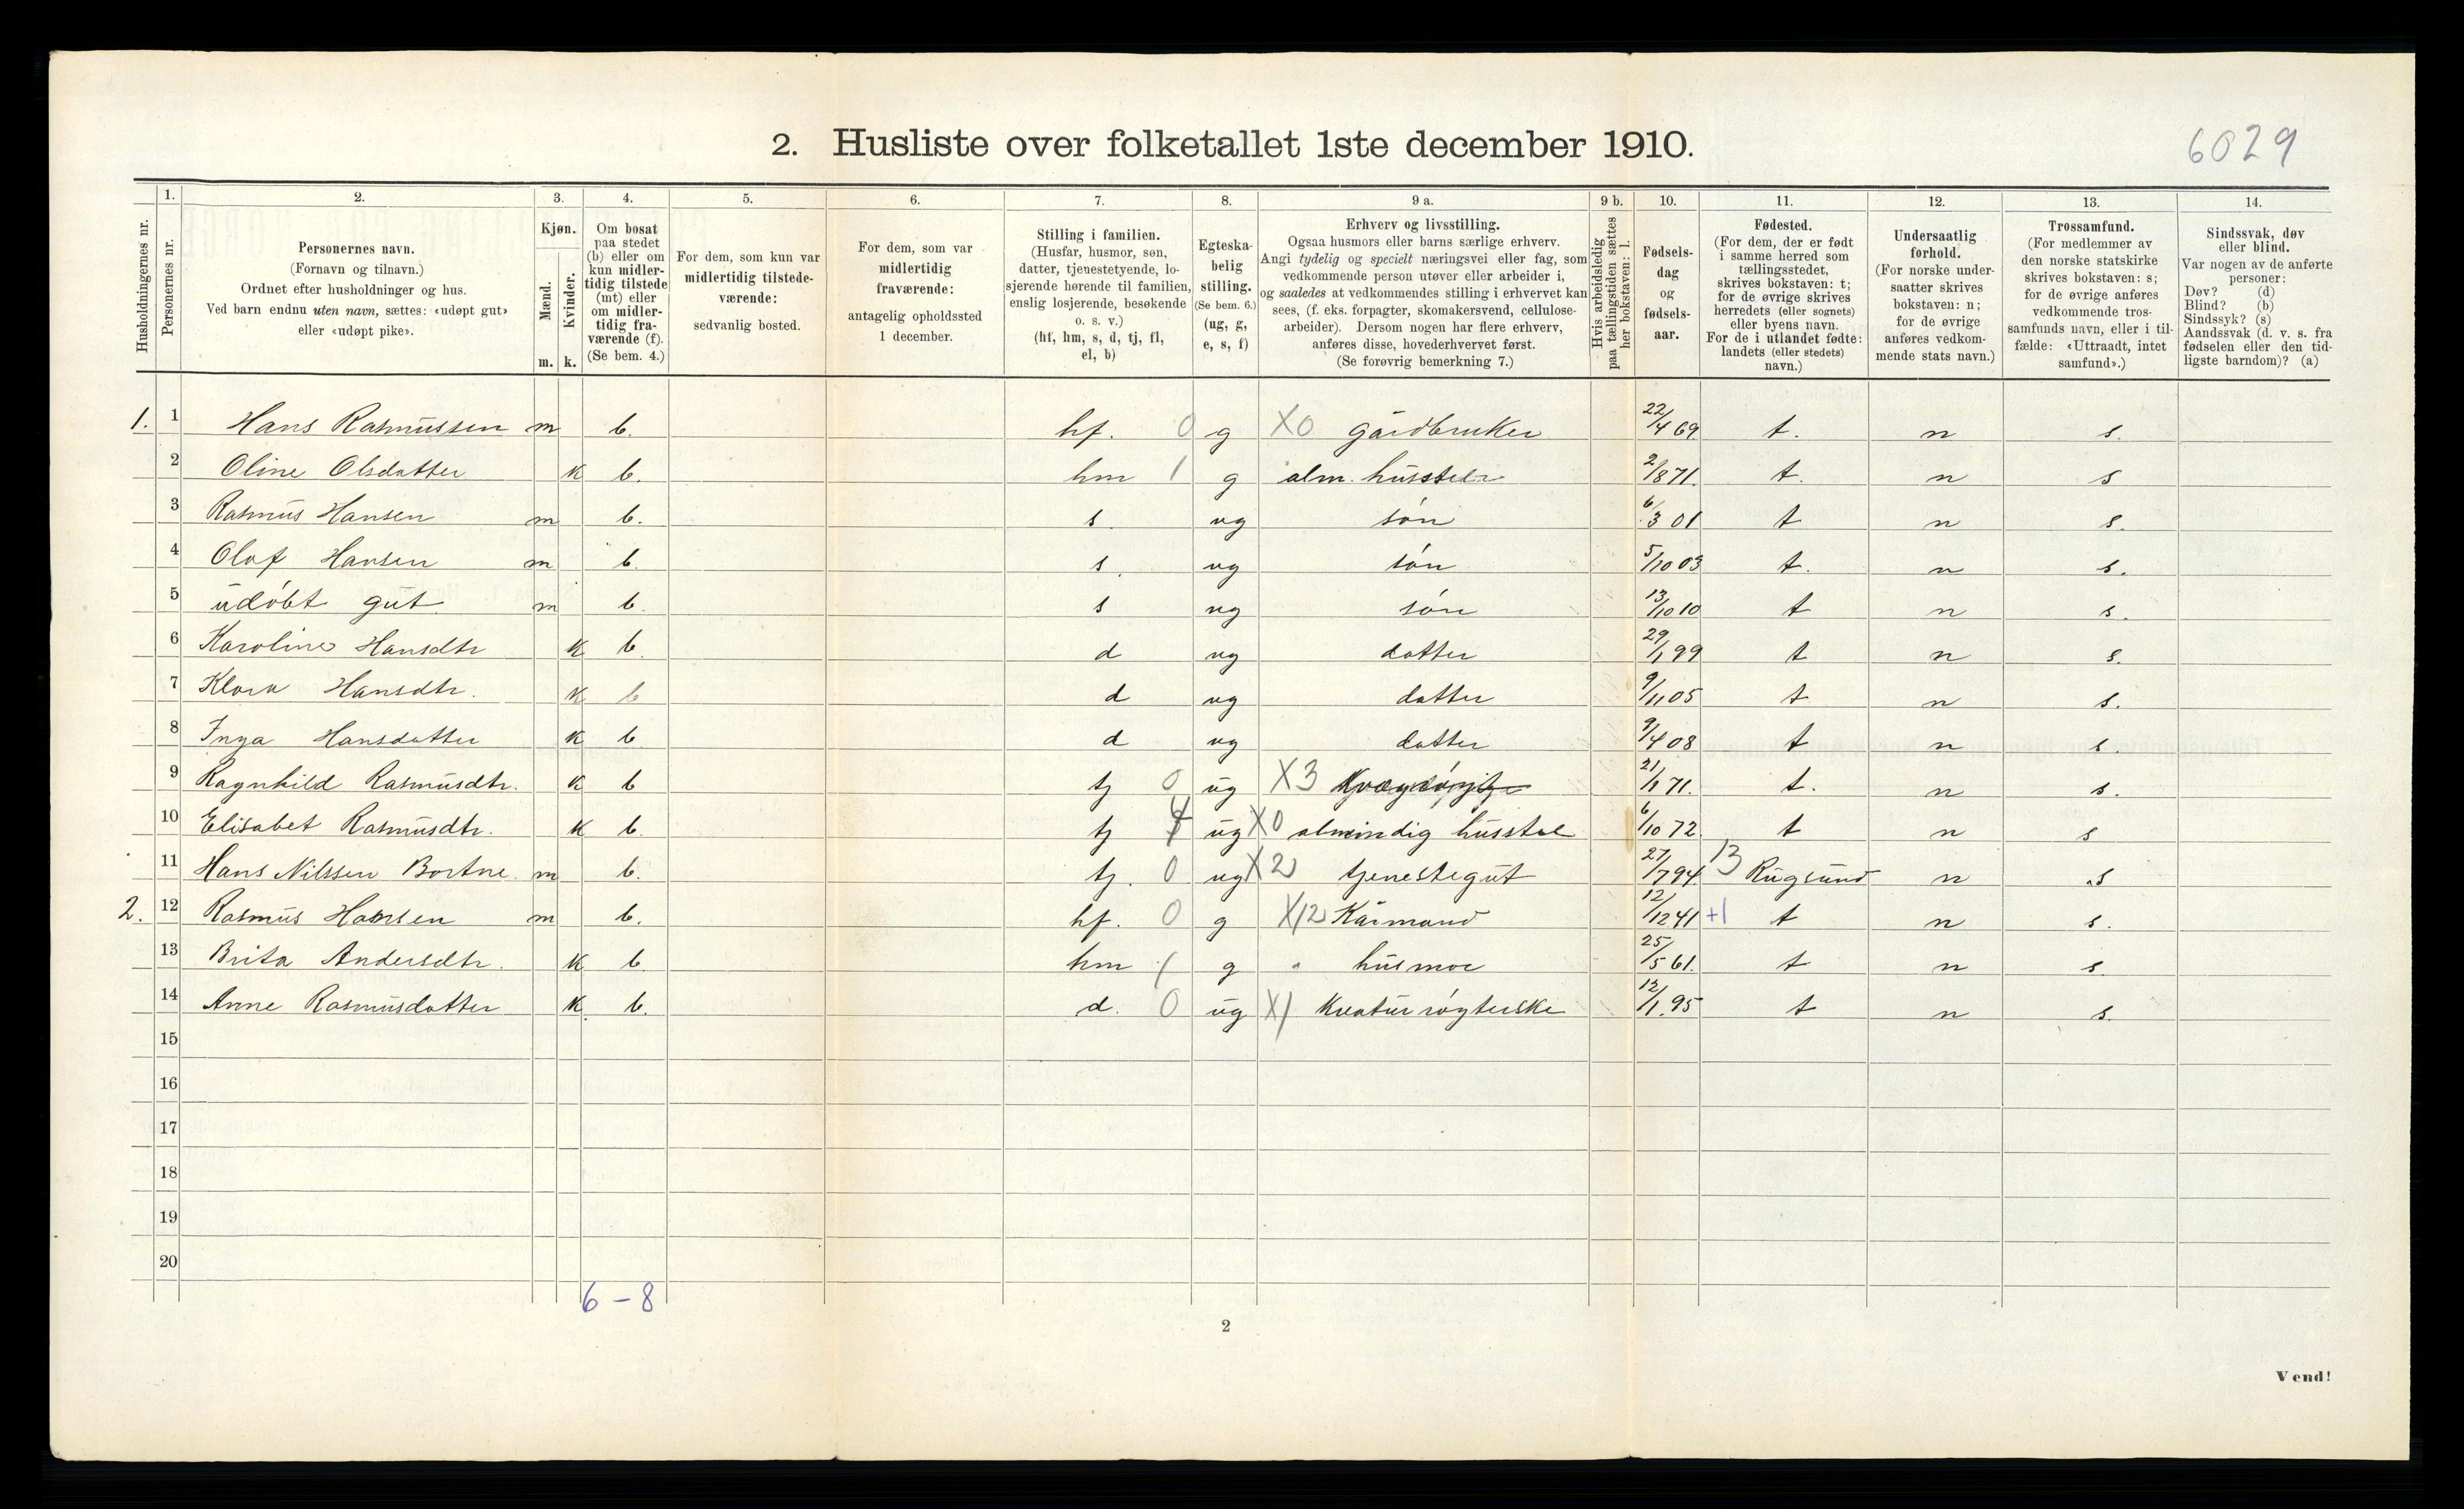 2. Husliste over folketallet 1ste december 1910.
6029
Husholdningernes nr.
1. Personernes nr.
2. Personernes navn.
(Fornavn og tilnavn.)
Ordnet efter husholdninger og hus.
Ved barn endnu uten navn, sættes: «udøpt gut»
eller «udøpt pike».
3. Kjøn.
Mænd. m.
Kvinder. k.
4. Om bosat
paa stedet
(b) eller om
kun midler-
tidig tilstede
(mt) eller
om midler-
tidig fra-
værende (f).
(Se bem. 4.)
5. For dem, som kun var
midlertidig tilstede-
værende:
sedvanlig bosted.
6. For dem, som var
midlertidig
fraværende:
antagelig opholdssted
1 december.
7. Stilling i familien.
(Husfar, husmor, søn,
datter, tjenestetyende, lo-
sjerende hørende til familien,
enslig losjerende, besøkende
o. s. v.)
(hf, hm, s, d, tj, fl,
el, b)
8. Egteska-
belig
stilling.
(Se bem. 6.)
(ug, g,
e, s, f)
9 a. Erhverv og livsstilling.
Ogsaa husmors eller barns særlige erhverv.
Angi tydelig og specielt næringsvei eller fag, som
vedkommende person utøver eller arbeider i,
og saaledes at vedkommendes stilling i erhvervet kan
sees, (f. eks. forpagter, skomakersvend, cellulose-
arbeider). Dersom nogen har flere erhverv,
anføres disse, hovederhvervet først.
(Se forøvrig bemerkning 7.)
9 b. Hvis arbeidsledig
paa tællingstiden sættes
her bokstaven: l.
10. Fødsels-
dag
og
fødsels-
aar.
11. Fødested.
(For dem, der er født
i samme herred som
tællingsstedet,
skrives bokstaven: t;
for de øvrige skrives
herredets (eller sognets)
eller byens navn.
For de i utlandet fødte:
landets (eller stedets)
navn.)
12. Undersaatlig
forhold.
(For norske under-
saatter skrives
bokstaven: n;
for de øvrige
anføres vedkom-
mende stats navn.)
13. Trossamfund.
(For medlemmer av
den norske statskirke
skrives bokstaven: s;
for de øvrige anføres
vedkommende tros-
samfunds navn, eller i til-
fælde: «Uttraadt, intet
samfund».)
14. Sindssvak, døv
eller blind.
Var nogen av de anførte
personer:
Døv? (d)
Blind? (b)
Sindssyk? (s)
Aandssvak (d. v. s. fra
fødselen eller den tid-
ligste barndom)? (a)
1. 1 Hans Rasmussen m b. hf. 0 g X0 gårdbruker 22/4 69 t. n s.
2 Oline Olsdatter k b. hm 1 g alm. husstel 2/8 71. t. n s
3 Rasmus Hansen m b. s. ug søn 6/3 01 t n s.
4 Olaf Hansen m b. s. ug søn 5/10 03 t. n s.
5 udøbt gut m b. s ug søn 13/10 10 t n s.
6 Karoline Hansdtr k b. d ug datter 29/1 99 t n s.
7 Klara Hansdtr. k b d ug datter 9/11 05 t n s.
8 Inga Hansdatter k b. d ug datter 9/4 08 t n s.
9 Ragnhild Rasmusdtr. k b tj 0 ug X3 21/1 71. t. n s.
10 Elisabet Rasmusdtr. k b. tj ug X0 almindig husstel 6/10 72 t n s
11 Hans Nilssen Bortne. m b. tj. 0 ug X2 tjenestegut 27/7 94. 13 Rugsund n s
2. 12 Rasmus Hansen m b. hf. 0 g X12 Kårmand 12/12 41 +1 t n s.
13 Brita Andersdtr. k b. hm 1 g " husmor 25/5 61. t n s.
14 Anne Rasmusdatter k b. d. 0 ug X1 Kreatur røgterske 12/1. 95 t n s.
15
16
17
18
19
20
6 – 8
2
Vend!